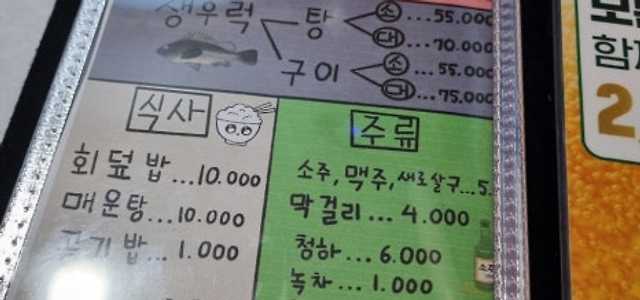 생우럭
탕 소...55.000
대...70.000
구이 소...55.000
대...75.000
식사
회덮밥...10.000
매운탕...10.000
공기밥...1.000
주류
소주, 맥주, 새로살구...5.
막걸리...4.000
청하...6.000
녹차...1.000
소주
2